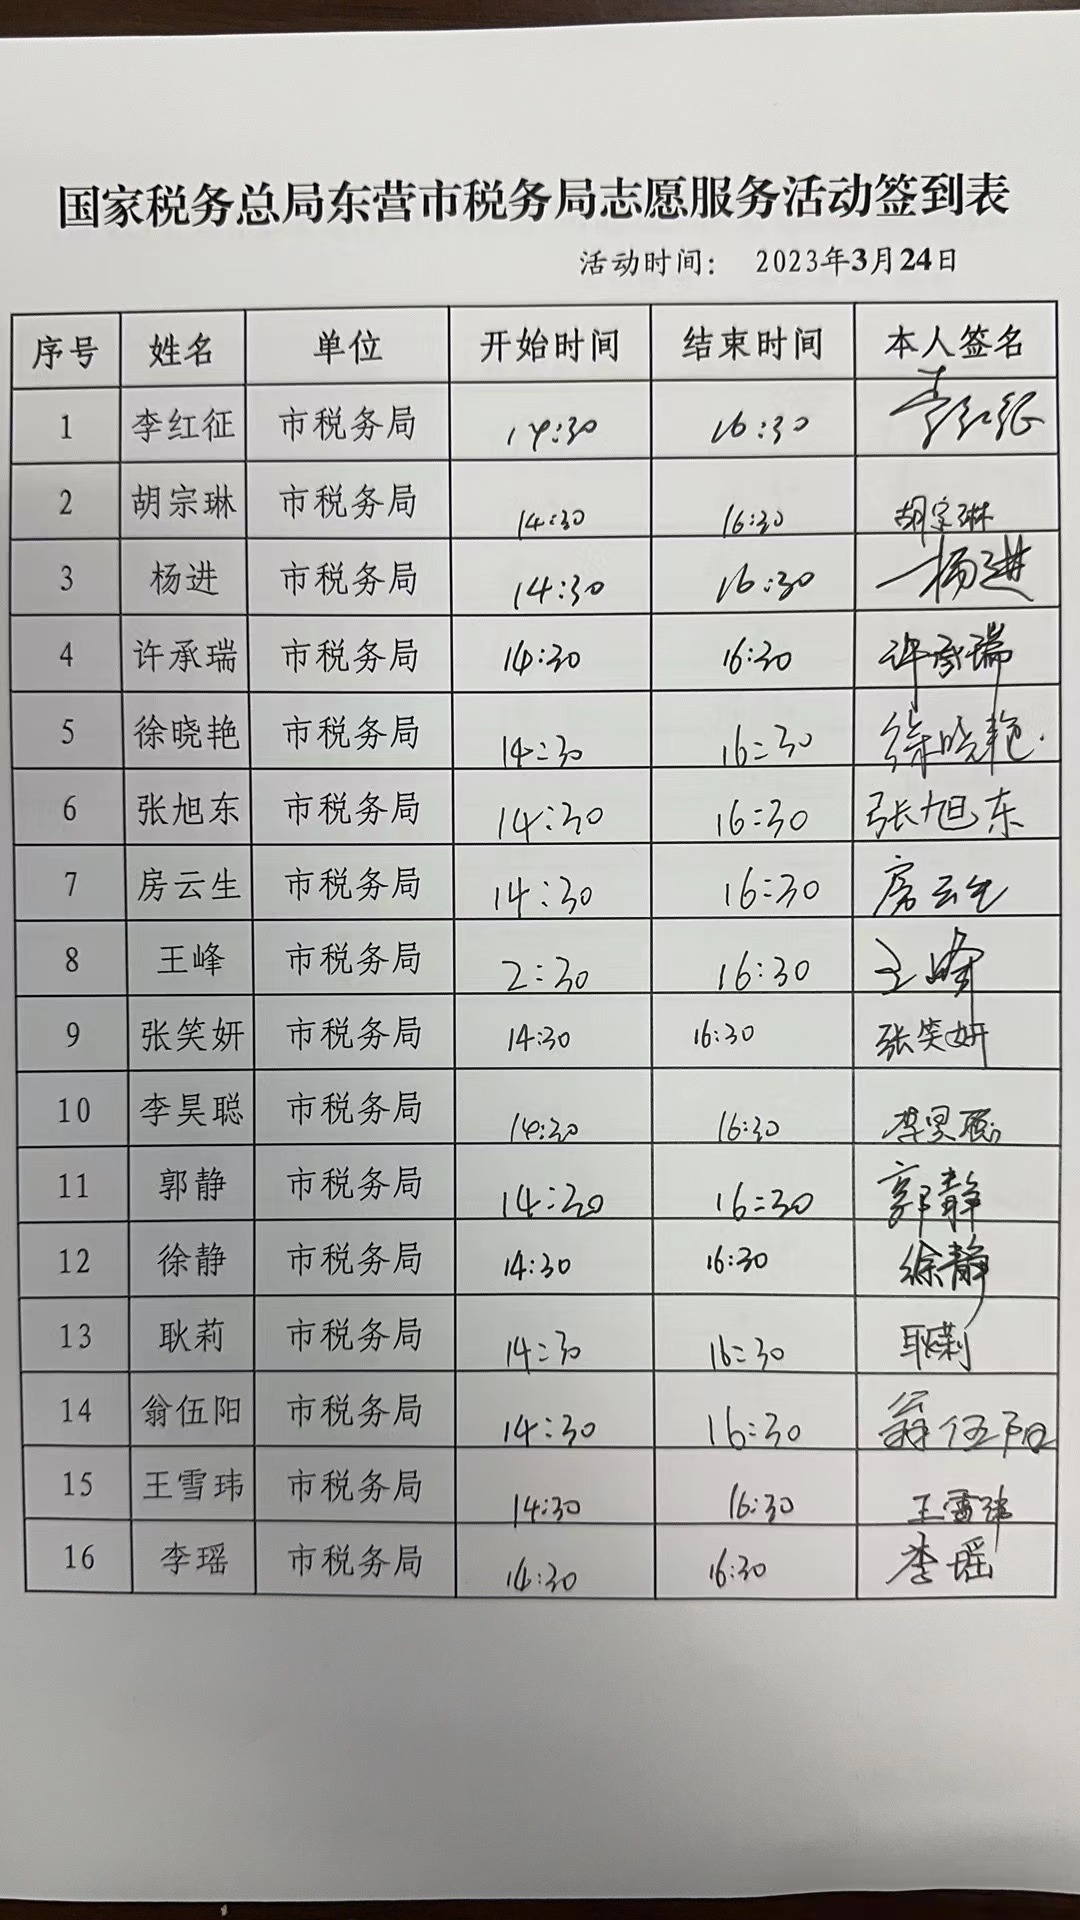 国家税务总局东营市税务局志愿服务活动签到表
活动时间： 2023年3月24日
序号 姓名 单位 开始时间 结束时间 本人签名
1 李红征 市税务局 14:30 16:30 李红征
2 胡宗琳 市税务局 14:30 16:30 胡宗琳
3 杨进 市税务局 14:30 16:30 杨进
4 许承瑞 市税务局 14:30 16:30 许承瑞
5 徐晓艳 市税务局 14:30 16:30 徐晓艳
6 张旭东 市税务局 14:30 16:30 张旭东
7 房云生 市税务局 14:30 16:30 房云生
8 王峰 市税务局 2:30 16:30 王峰
9 张笑妍 市税务局 14:30 16:30 张笑妍
10 李昊聪 市税务局 14:30 16:30 李昊聪
11 郭静 市税务局 14:30 16:30 郭静
12 徐静 市税务局 14:30 16:30 徐静
13 耿莉 市税务局 14:30 16:30 耿莉
14 翁伍阳 市税务局 14:30 16:30 翁伍阳
15 王雪玮 市税务局 14:30 16:30 王雪玮
16 李瑶 市税务局 14:30 16:30 李瑶